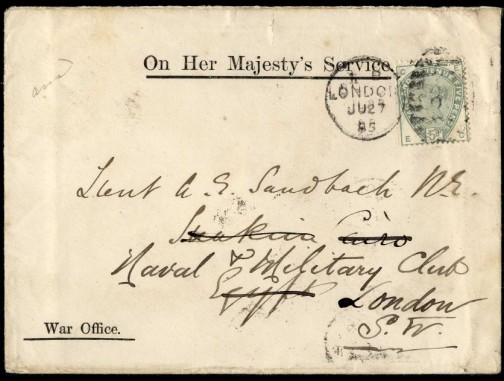 On Her Majesty's Service.
LONDON
JU27
85
Lieut A. E. Sandbach R.E.
Suakin Cairo
Naval & Military Club
Egypt London
S.W.
War Office.